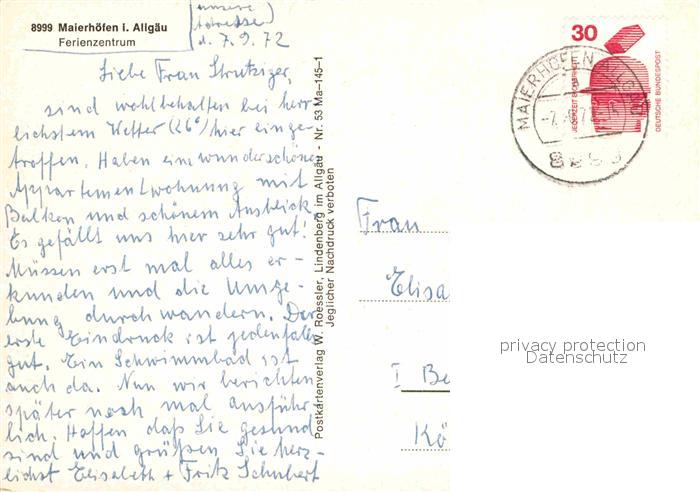 8999 Maierhöfen i. Allgäu
Ferienzentrum
(unsere
Adresse)
d. 7.9.72
Liebe Frau Strutziger,
sind wohlbehalten bei herr
lichstem Wetter (26°) hier einge-
troffen. Haben eine wunderschöne
Appartementwohnung mit
Balkon und schönem Ausblick.
Es gefällt uns hier sehr gut!
Müssen erst mal alles er-
kunden und die Umge-
bung durchwandern. Der
erste Eindruck ist jedenfalls
gut. Ein Schwimmbad ist
auch da. Nun wir berichten
später noch mal ausführ-
lich. Hoffen daß Sie gesund
sind und grüßen Sie herz-
lichst Elisabeth + Fritz Schubert
Postkartenverlag W. Roessler, Lindenberg im Allgäu - Nr. 53 Ma-145-1
Jeglicher Nachdruck verboten
30
JEDERZEIT SICHERHEIT
DEUTSCHE BUNDESPOST
MAIERHÖFEN ALLGÄU
Frau
Elisa
I Be
Kö
privacy protection
Datenschutz